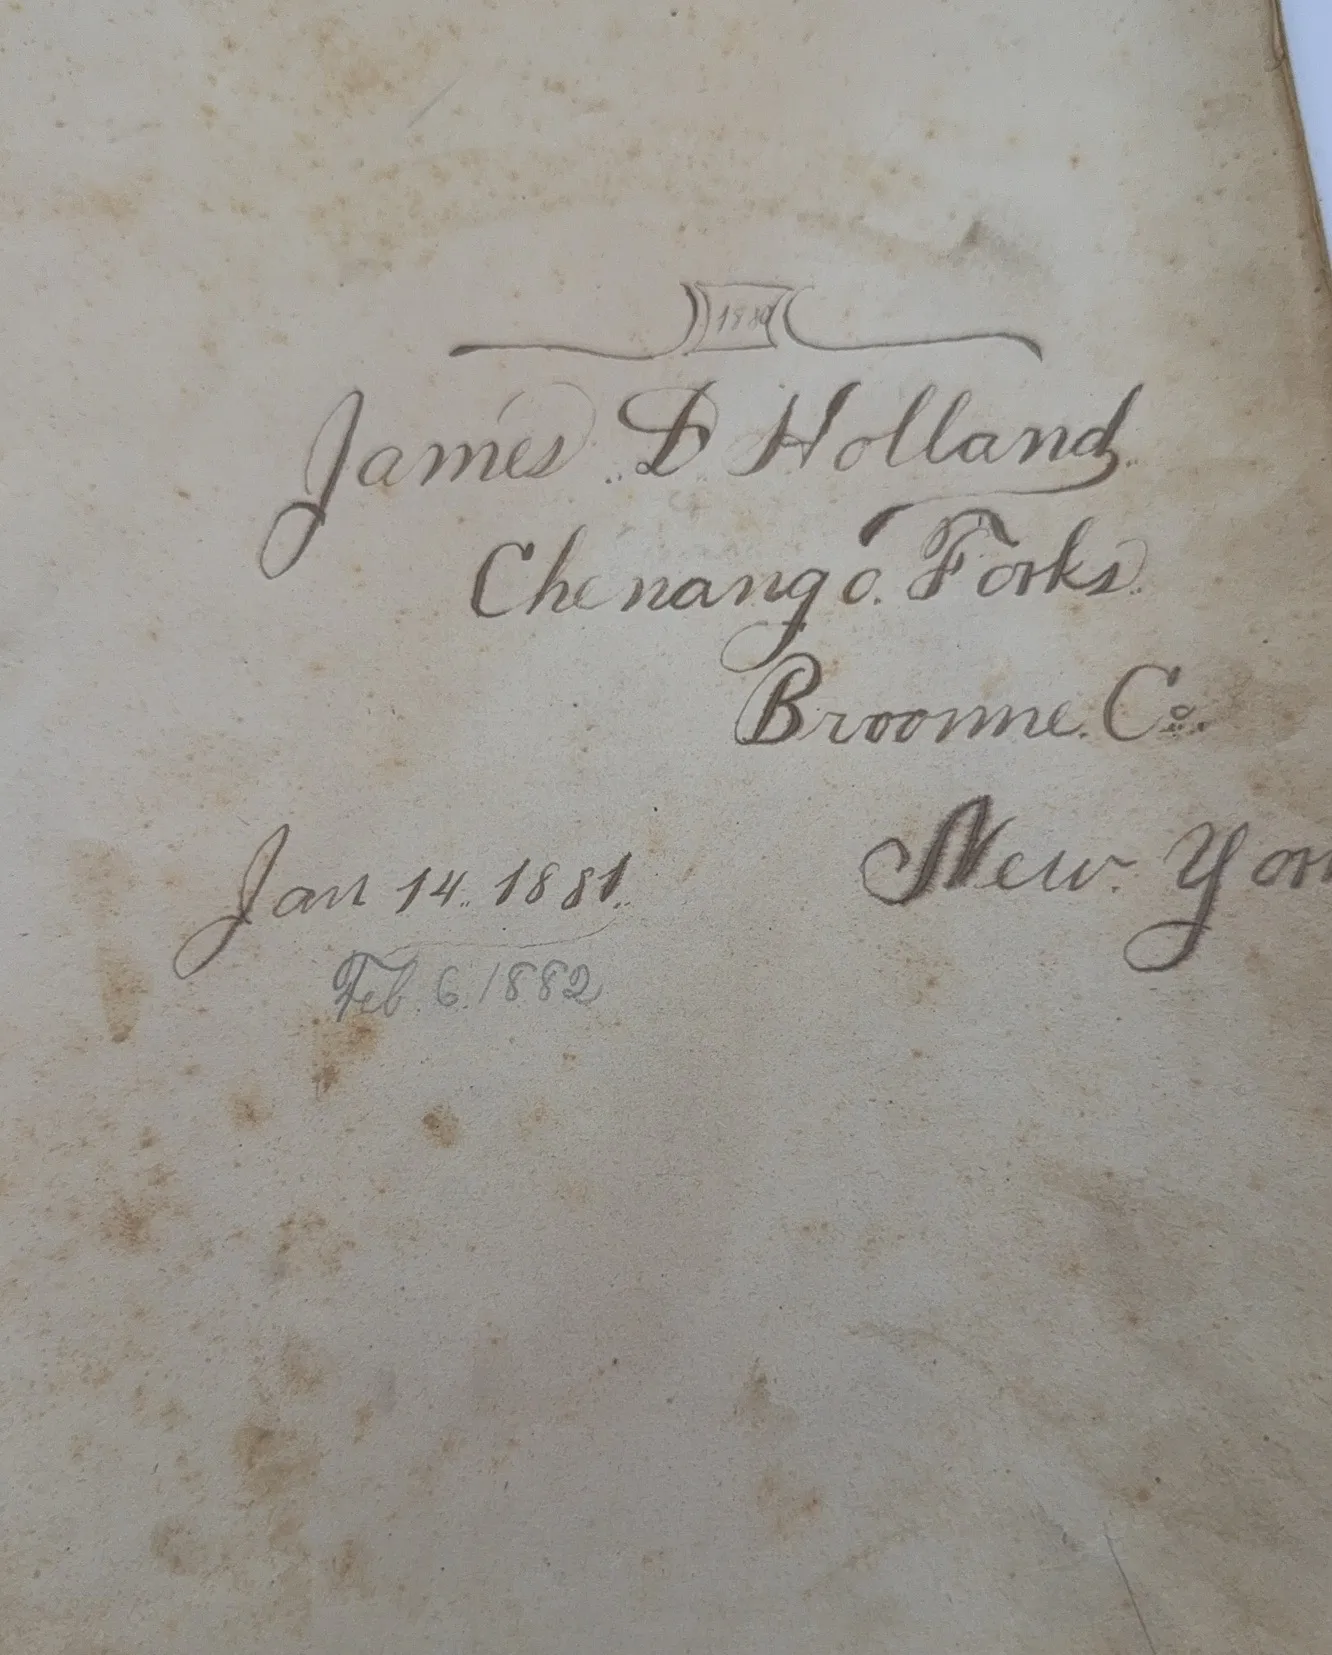 1880
James D Holland
Chenango. Forks.
Broome. Co.
New. Yor
Jan 14. 1881.
Feb. 6. 1882